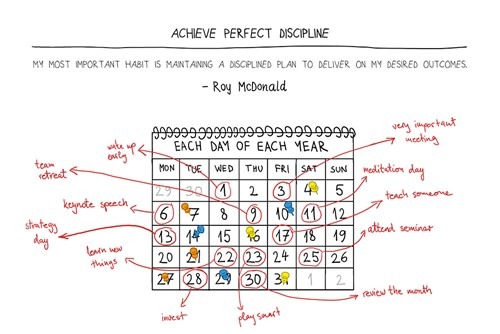 ACHIEVE PERFECT DISCIPLINE
MY MOST IMPORTANT HABIT IS MAINTAINING A DISCIPLINED PLAN TO DELIVER ON MY DESIRED OUTCOMES.
- Roy McDonald
very important
meeting
wake up
early
EACH DAY OF EACH YEAR
team
retreat
meditation day
MON TUE WED THU FRI SAT SUN
29 30 1 2 3 4 5
teach someone
keynote speech
6 7 8 9 10 11 12
strategy
day
13 14 15 16 17 18 19
attend seminar
learn new
things
20 21 22 23 24 25 26
27 28 29 30 31 1 2
review the month
invest
play smart